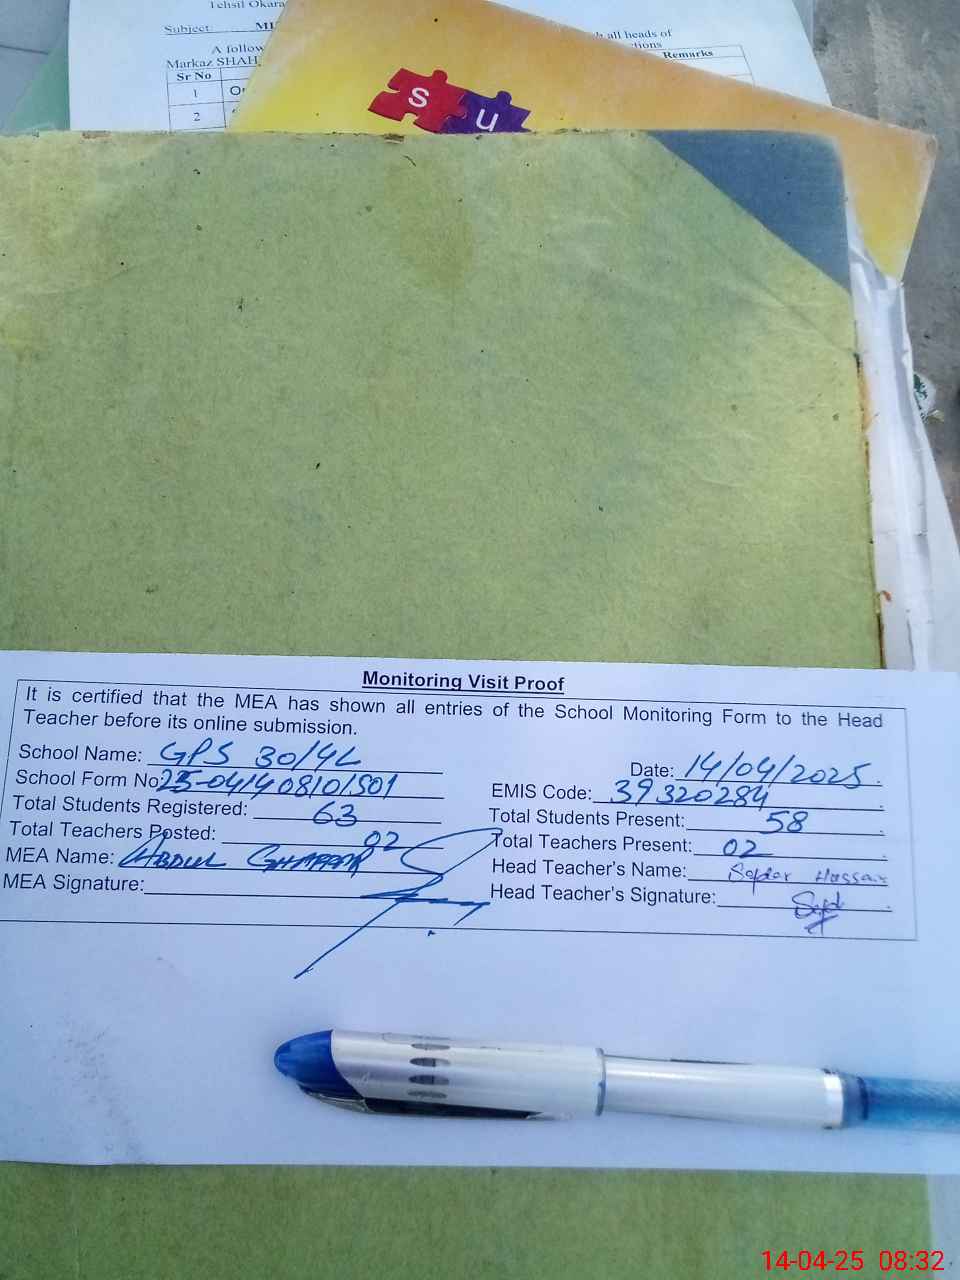 Tehsil Okara
Subject: MI
all heads of
A follow
Markaz SHAH
Sr No
Remarks
1
2
s
u
Monitoring Visit Proof
It is certified that the MEA has shown all entries of the School Monitoring Form to the Head
Teacher before its online submission.
School Name: GPS 30/4L
Date: 14/04/2025
School Form No 25-041408101501
EMIS Code: 39320284
Total Students Registered: 63
Total Students Present: 58
Total Teachers Posted: 02
Total Teachers Present: 02
MEA Name: ABDUL GHAFFAR
Head Teacher's Name: Safdar Hussain
MEA Signature:
Head Teacher's Signature:
14-04-25 08:32